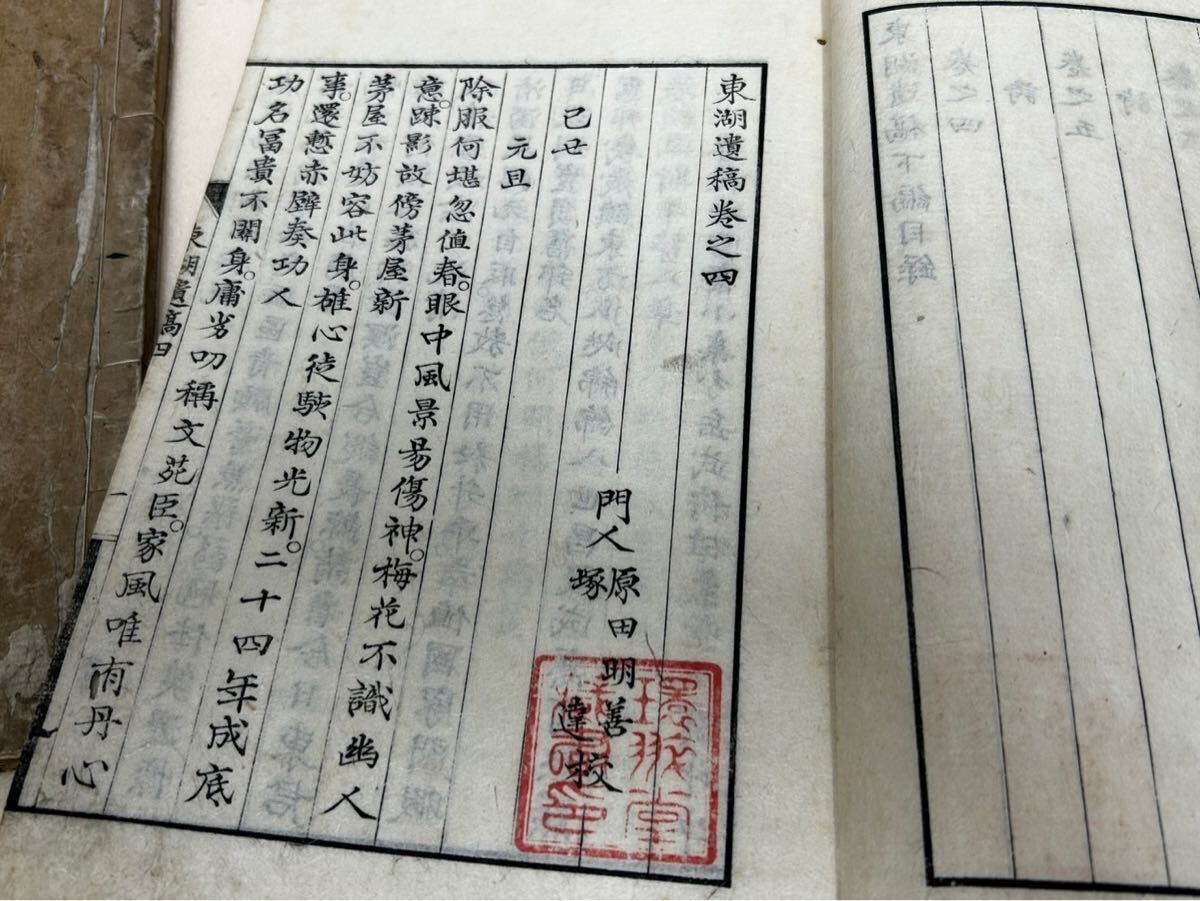 東湖遺稿卷之四
門人原田明善
塚達校
己丑
元旦
除服何堪忽値春。眼中風景易傷神。梅花不識幽人
意。踈影故傍茅屋新
茅屋不妨容此身。雄心徒駭物光新。二十四年成底
事。還慙赤壁奏功人
功名冨貴不關身。庸劣叨稱文苑臣。家風唯有丹心
東湖遺稿四
一